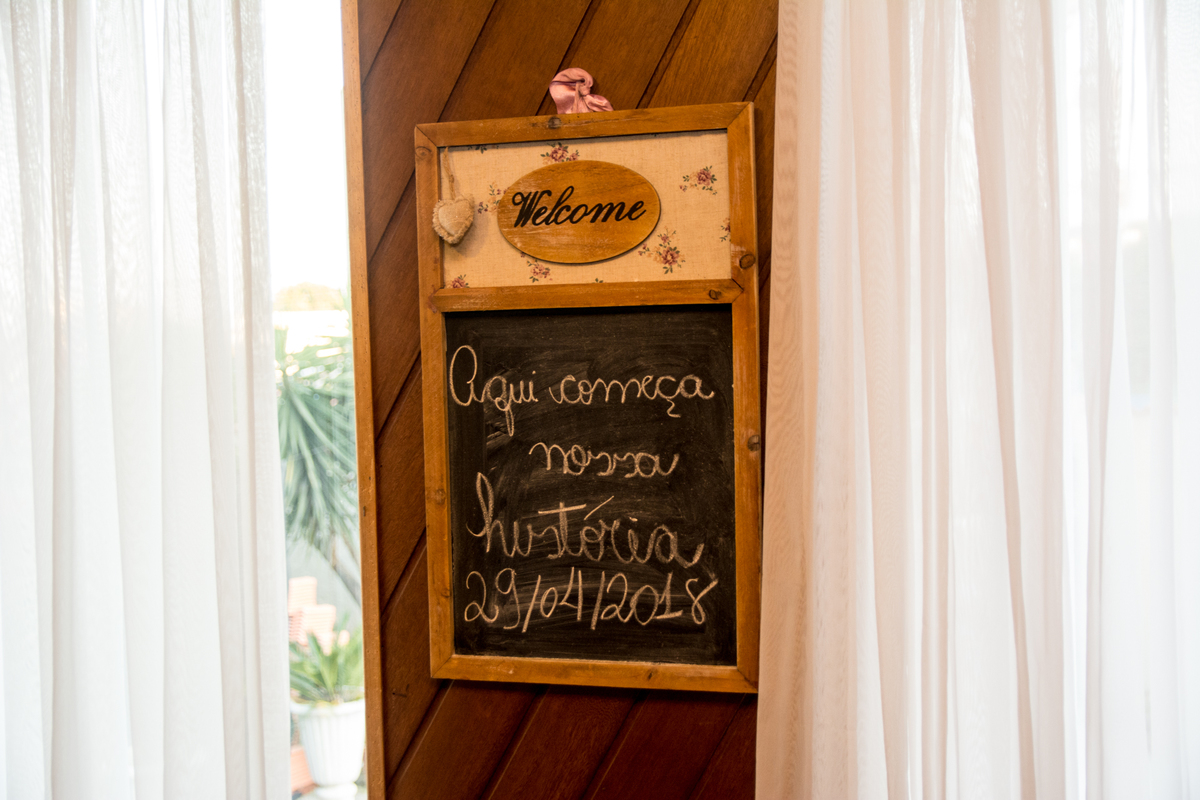 Welcome
Aqui começa
nossa
história
29/04/2018